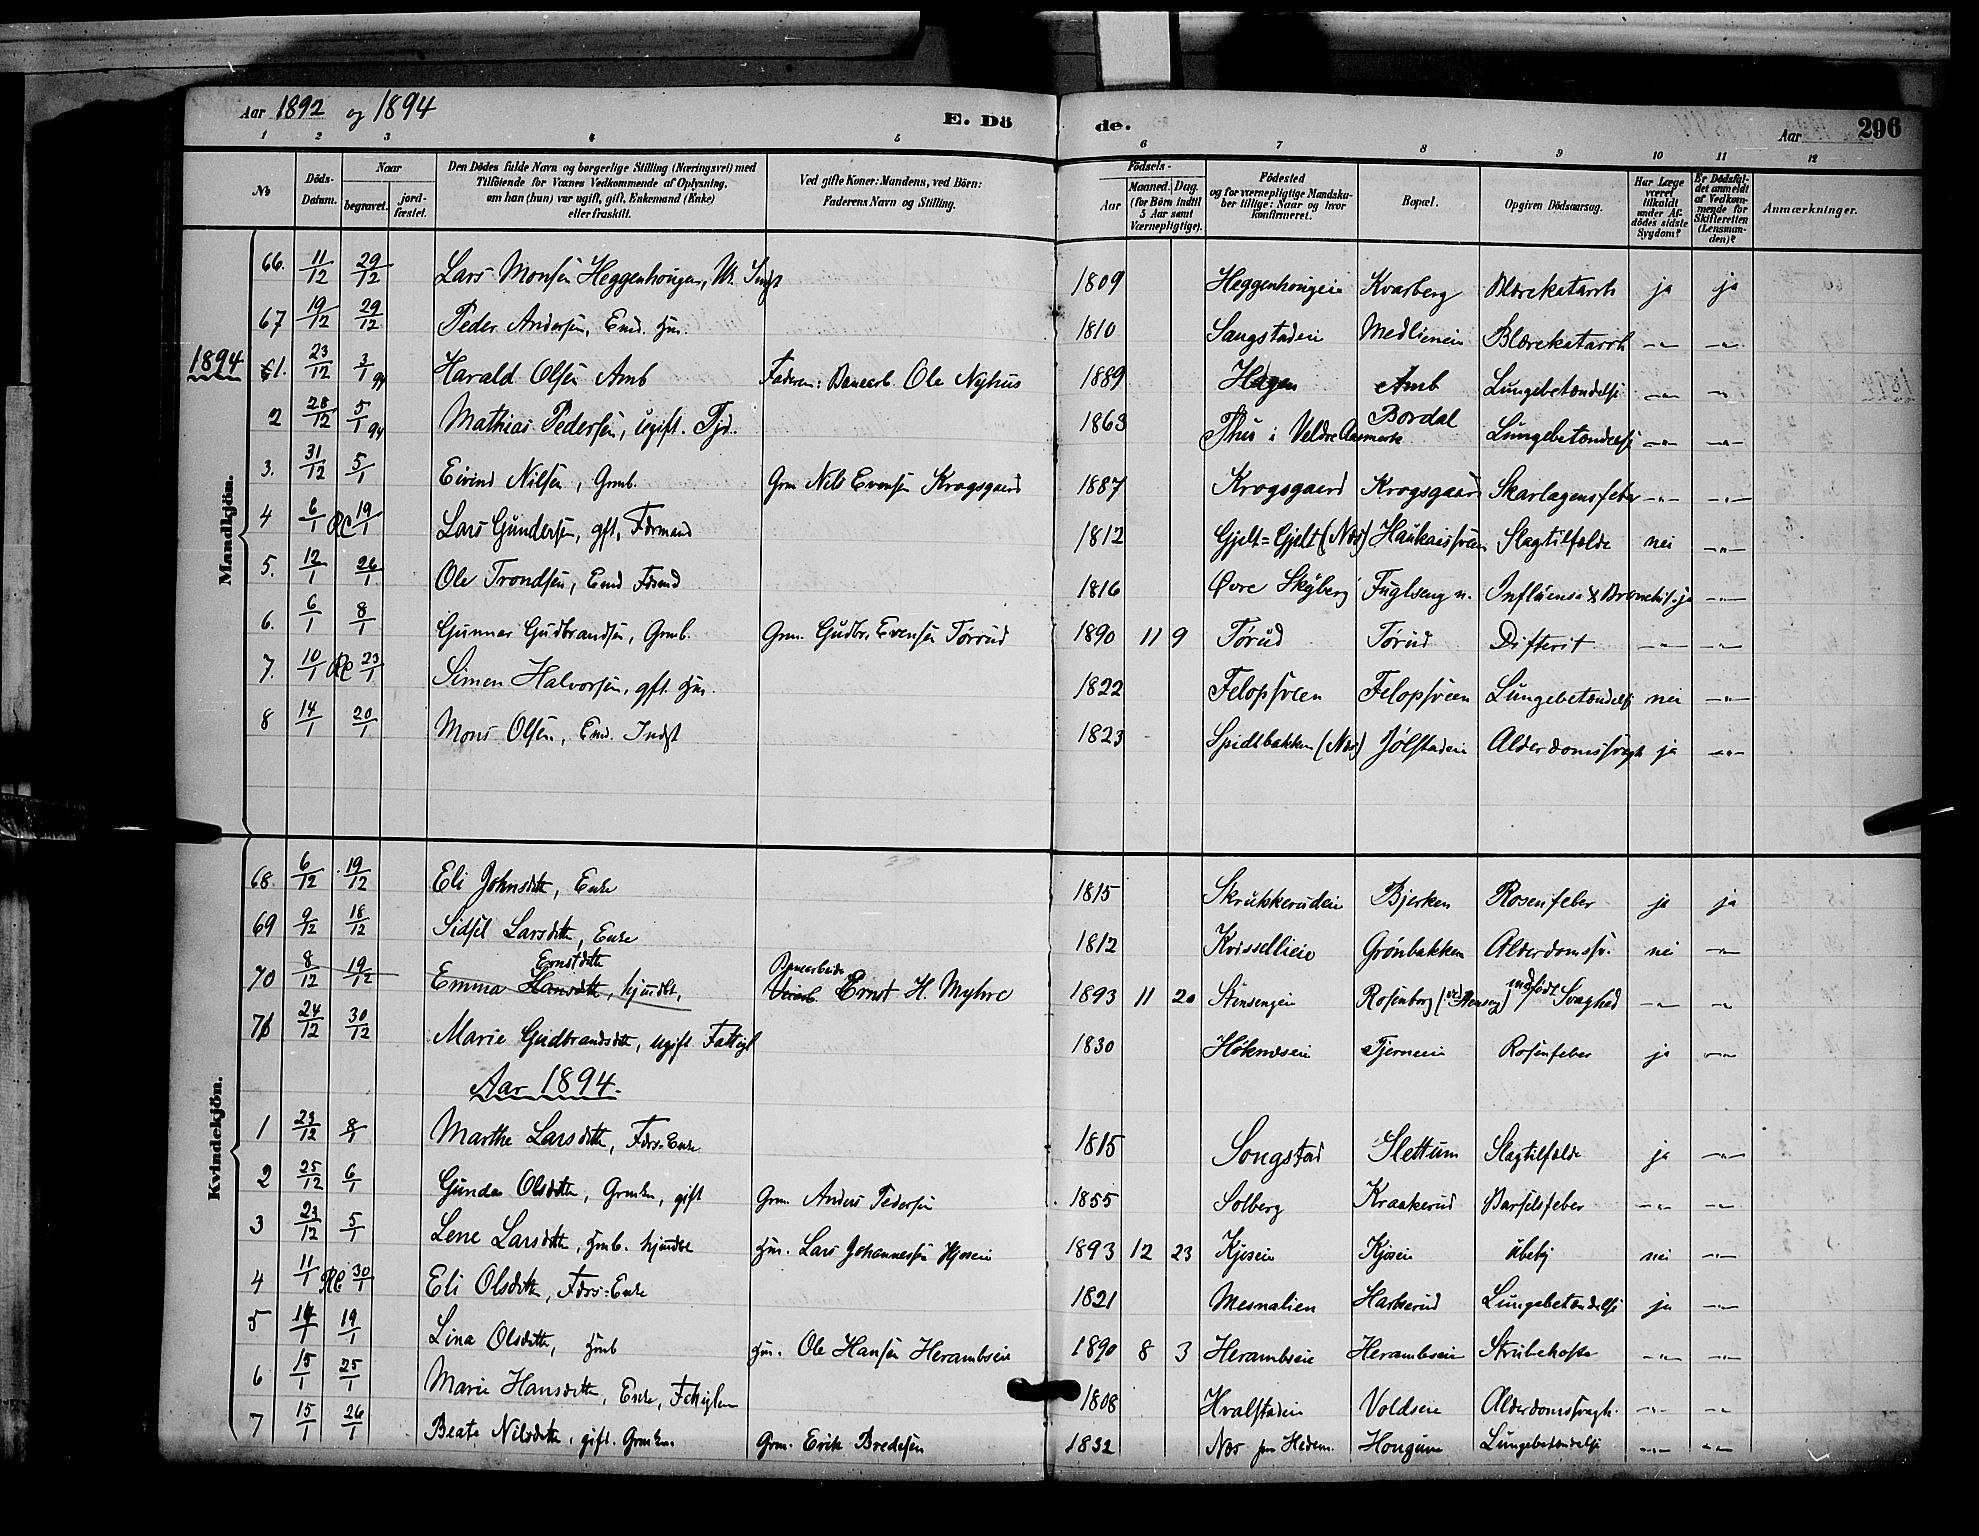 Aar 1892 og 1894 E. Dö de. Aar 296
1 2 3 4 5 6 7 8 9 10 11 12
No Döds-Datum. Naar begravet. jordfæstet. Den Dödes fulde Navn og borgerlige Stilling (Næringsvei) med Tilföiende for Voxnes Vedkommende af Oplysning, om han (hun) var ugift, gift, Enkemand (Enke) eller fraskilt. Ved gifte Koner: Mandens, ved Börn: Faderens Navn og Stilling. Födsels- Aar Maaned. Dag. (for Börn indtil 5 Aar samt Værnepligtige). Födested og for værnepligtige Mandskaber tillige: Naar og hvor konfirmeret. Bopæl. Opgiven Dödsaarsag. Har Læge været tilkaldt under Afdödes sidste Sygdom? Er Dödsfaldet anmeldt af Vedkommende for Skifteretten (Lensmanden)? Anmærkninger.
Mandkjön.
66. 11/12 29/12 Lars Monsen Heggenhougen, 1809 Heggenhougeie Kvarberg Blærekatarrh ja ja
67 19/12 29/12 Peder Andersen, Emd. Hm. 1810 Sangstadeie Medlieneie Blærekatarrh -"- -"-
1894
1. 23/12 3/1 94 Harald Olsen Amb Faderen: Banearb. Ole Nyhus 1889 Hagen Amb Lungebetændelse -"- -"-
2 28/12 5/1 94 Mathias Pedersen, ugift. Tjd. 1863 Thus i Veldre Aasmark Bordal Lungebetændelse -"- -"-
3. 31/12 5/1 Eivind Nilsen, Grmb. Grm Nils Evensen Krogsgaard 1887 Krogsgaard Krogsgaard Skarlagensfeber -"- -"-
4 6/1 19/1 Lars Gundersen, gft, Formand 1812 Gjelt=Gjelt (Næs) Slagtilfælde nei -"-
5. 12/1 26/1 Ole Trondsen, Emd 1816 Øvre Skyberg Fuglseng n. Influensa & Bronchit. ja -"-
6. 6/1 8/1 Gunnar Gudbrandsen, Grmb. Grm. Gudbr. Evensen Törrud 1890 11 9 Törud Törud Difterit -"- -"-
7. 10/1 23/1 Simen Halvorsen, gft. Hm. 1822 Felopsveen Felopsveen Lungebetændelse nei -"-
8 14/1 20/1 Mons Olsen, Emd. Indst 1823 Spidlbakken (Næs) Jølstadeie Alderdomssvagh ja -"-
Kvindekjön.
68. 6/12 19/12 Eli Johnsdtr, Enke 1815 Skrukkerudeie Bjerken Rosenfeber ja ja
69 9/12 18/12 Sidsel Larsdtr, Enke 1812 Kvissellieie Grönbakken Alderdomssv. nei -"-
70 8/12 19/12 Emma Hansdtr Ernstdtr, hjmdbt, Banearbeider Ernst H. Myhre 1893 11 20 Stensengeie Rosenborg (ved Stenseng) medfødt Svaghed -"- -"-
71 24/12 30/12 Marie Gudbrandsdtr, ugift Fattigl 1830 Höknæseie Tjerneeie Rosenfeber ja -"-
Aar 1894.
1 23/12 8/1 Marthe Larsdtr, Førs-Enke 1815 Songstad Slettum Slagtilfælde ja -"-
2 25/12 6/1 Gunda Olsdtr, Grmkn, gift Grm. Anders Pedersen 1855 Solberg Kraakerud Barselfeber -"- -"-
3 23/12 5/1 Lene Larsdtr, Hmb. hjmdbt Hm. Lars Johannessen Kjoseie 1893 12 23 Kjoseie Kjoseie ubekj nei -"-
4 11/1 30/1 Eli Olsdtr, Førs=Enke 1821 Mesnalien Harkerud Lungebetændelse ja -"-
5 14/1 19/1 Lina Olsdtr, Hmb Hm. Ole Hansen Herambseie 1890 8 3 Herambseie Herambseie Strubehoste -"- -"-
6 15/1 25/1 Marie Hansdtr, Enke, Fattiglem 1808 Hvalstadeie Voldseie Alderdomssvagh. -"- -"-
7 15/1 26/1 Beate Nilsdtr, gift. Grmkn. Grm. Erik Bredesen 1832 Næs paa Hedem. Hougum Lungebetændelse -"- -"-